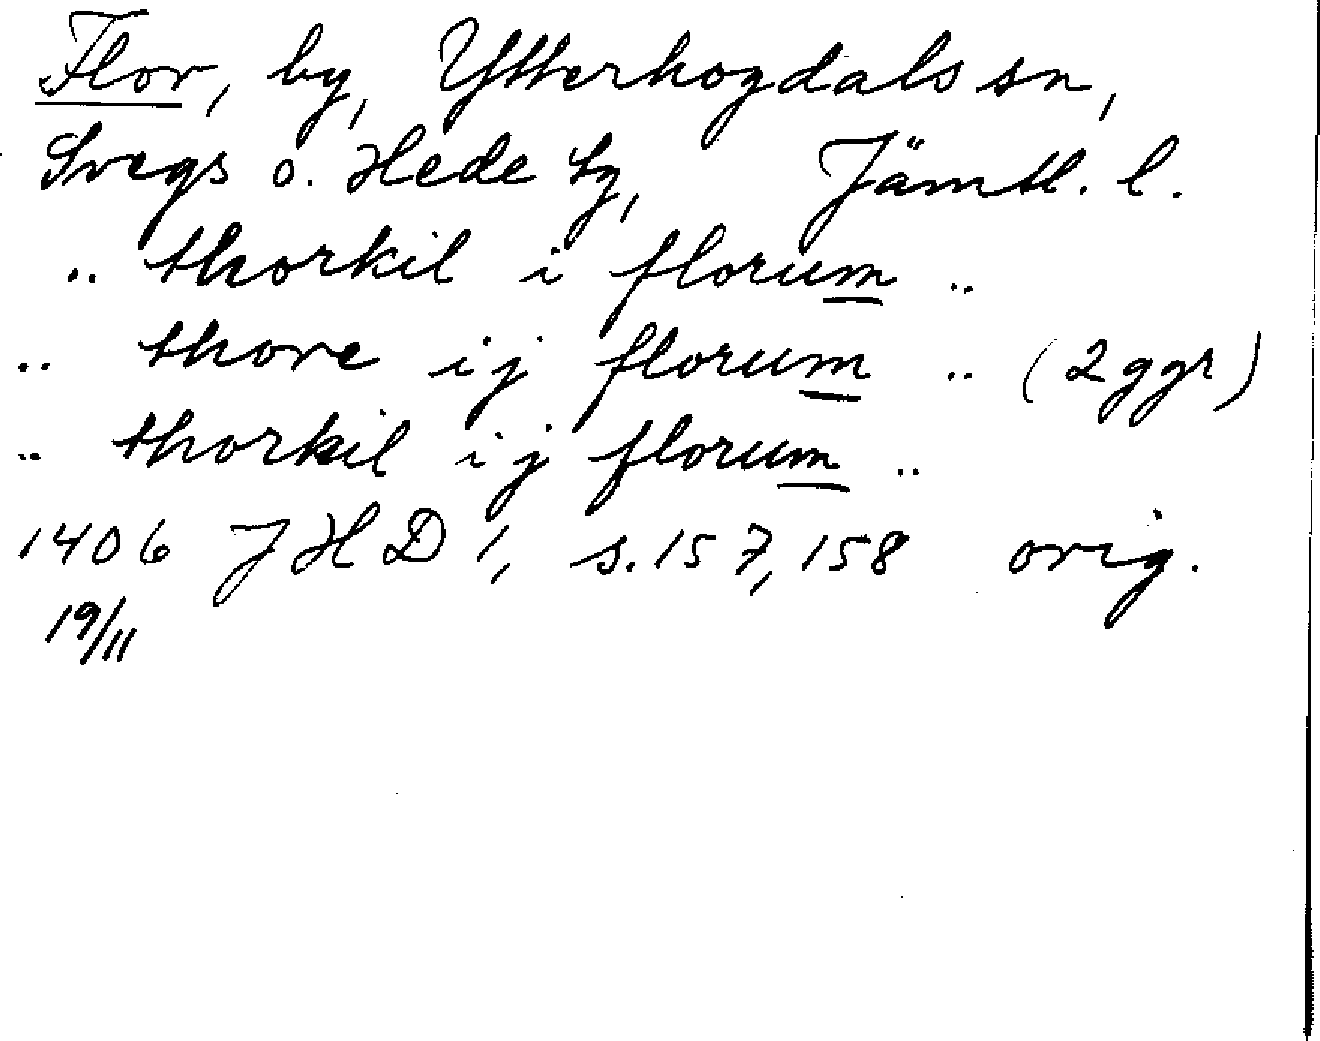 Flor, by, Ytterhogdals sn,
Svegs o. Hede tg, Jämtl. l.
.. thorkil i florum ..
.. thore ij florum .. (2 ggr)
.. thorkil ij florum ..
1406 JHD 1, s. 157, 158 orig.
19/11